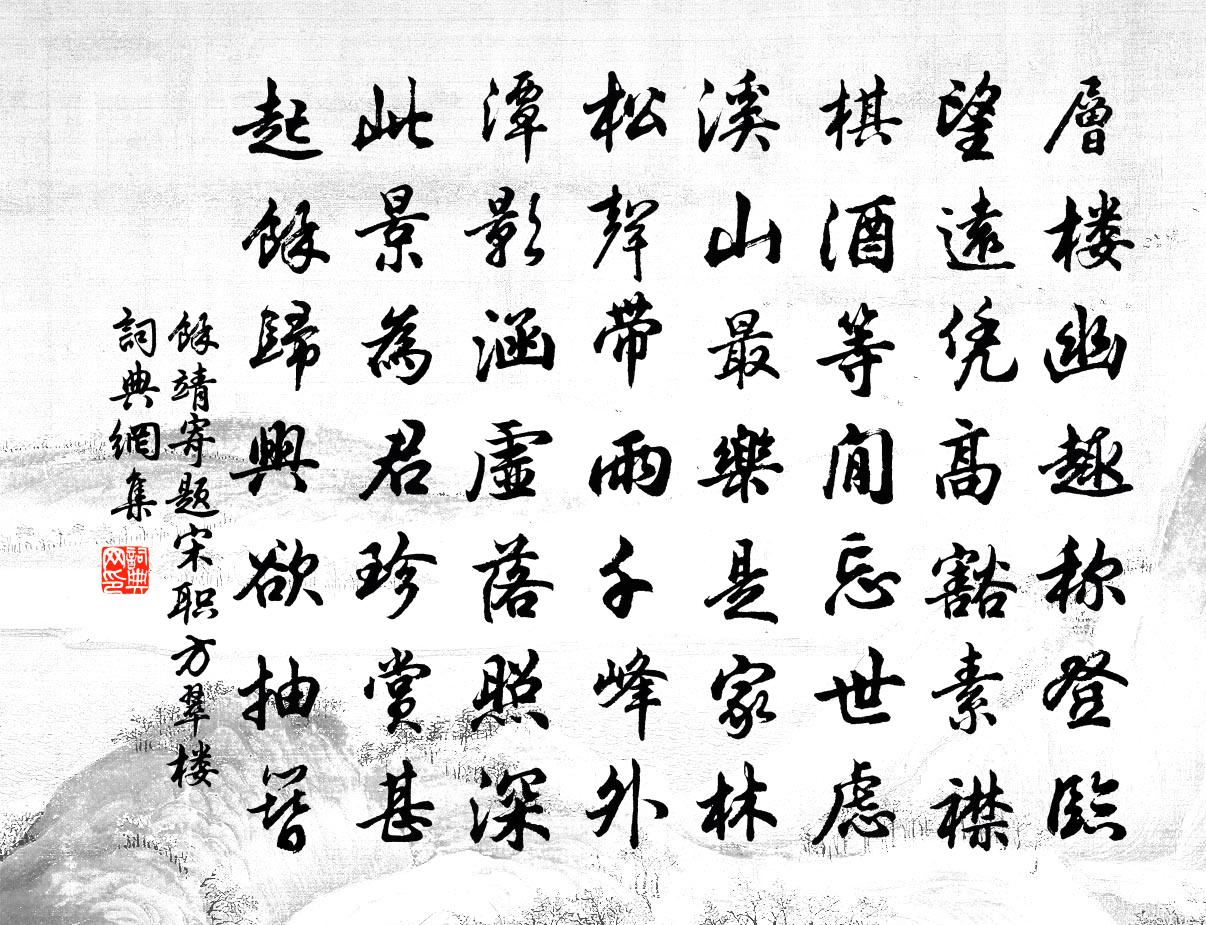 層楼幽趣称登臨
望遠凭高豁素襟
棋酒等閒忘世慮
溪山最樂是家林
松聲帶雨千峰外
潭影涵虛落照深
此景為君珍賞甚
起餘歸興欲抽簪
餘靖寄題宋职方翠楼
詞典網集
詞典网印